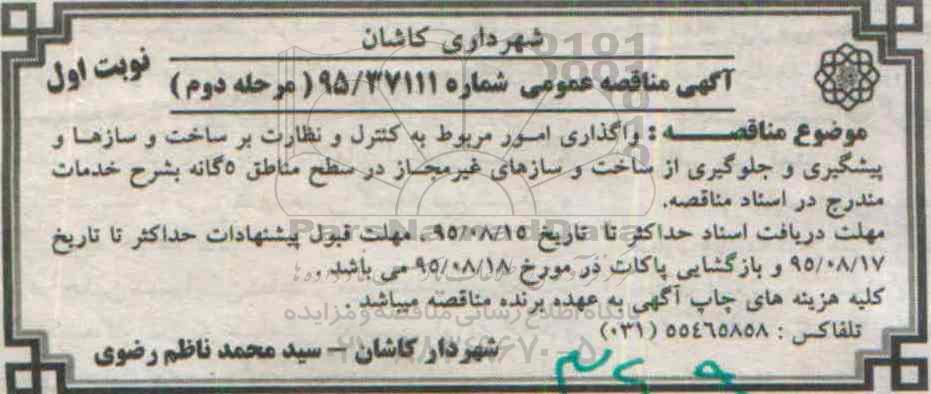 شهرداری کاشان
نوبت اول
آگهی مناقصه عمومی شماره ۹۵/۳۷۱۱۱ ( مرحله دوم )
موضوع مناقصـــه : واگذاری امور مربوط به کنترل و نظارت بر ساخت و سازها و
پیشگیری و جلوگیری از ساخت و سازهای غیرمجاز در سطح مناطق ۵گانه بشرح خدمات
مندرج در اسناد مناقصه.
مهلت دریافت اسناد حداکثر تا تاریخ ۹۵/۰۸/۱۵، مهلت قبول پیشنهادات حداکثر تا تاریخ
۹۵/۰۸/۱۷ و بازگشایی پاکات در مورخ ۹۵/۰۸/۱۸ می باشد .
کلیه هزینه های چاپ آگهی به عهده برنده مناقصه میباشد .
تلفاکس : ۵۵۴۶۵۸۵۸ (۰۳۱)
شهردار کاشان – سید محمد ناظم رضوی
ParsNamadData
پایگاه اطلاع رسانی مناقصه و مزایده